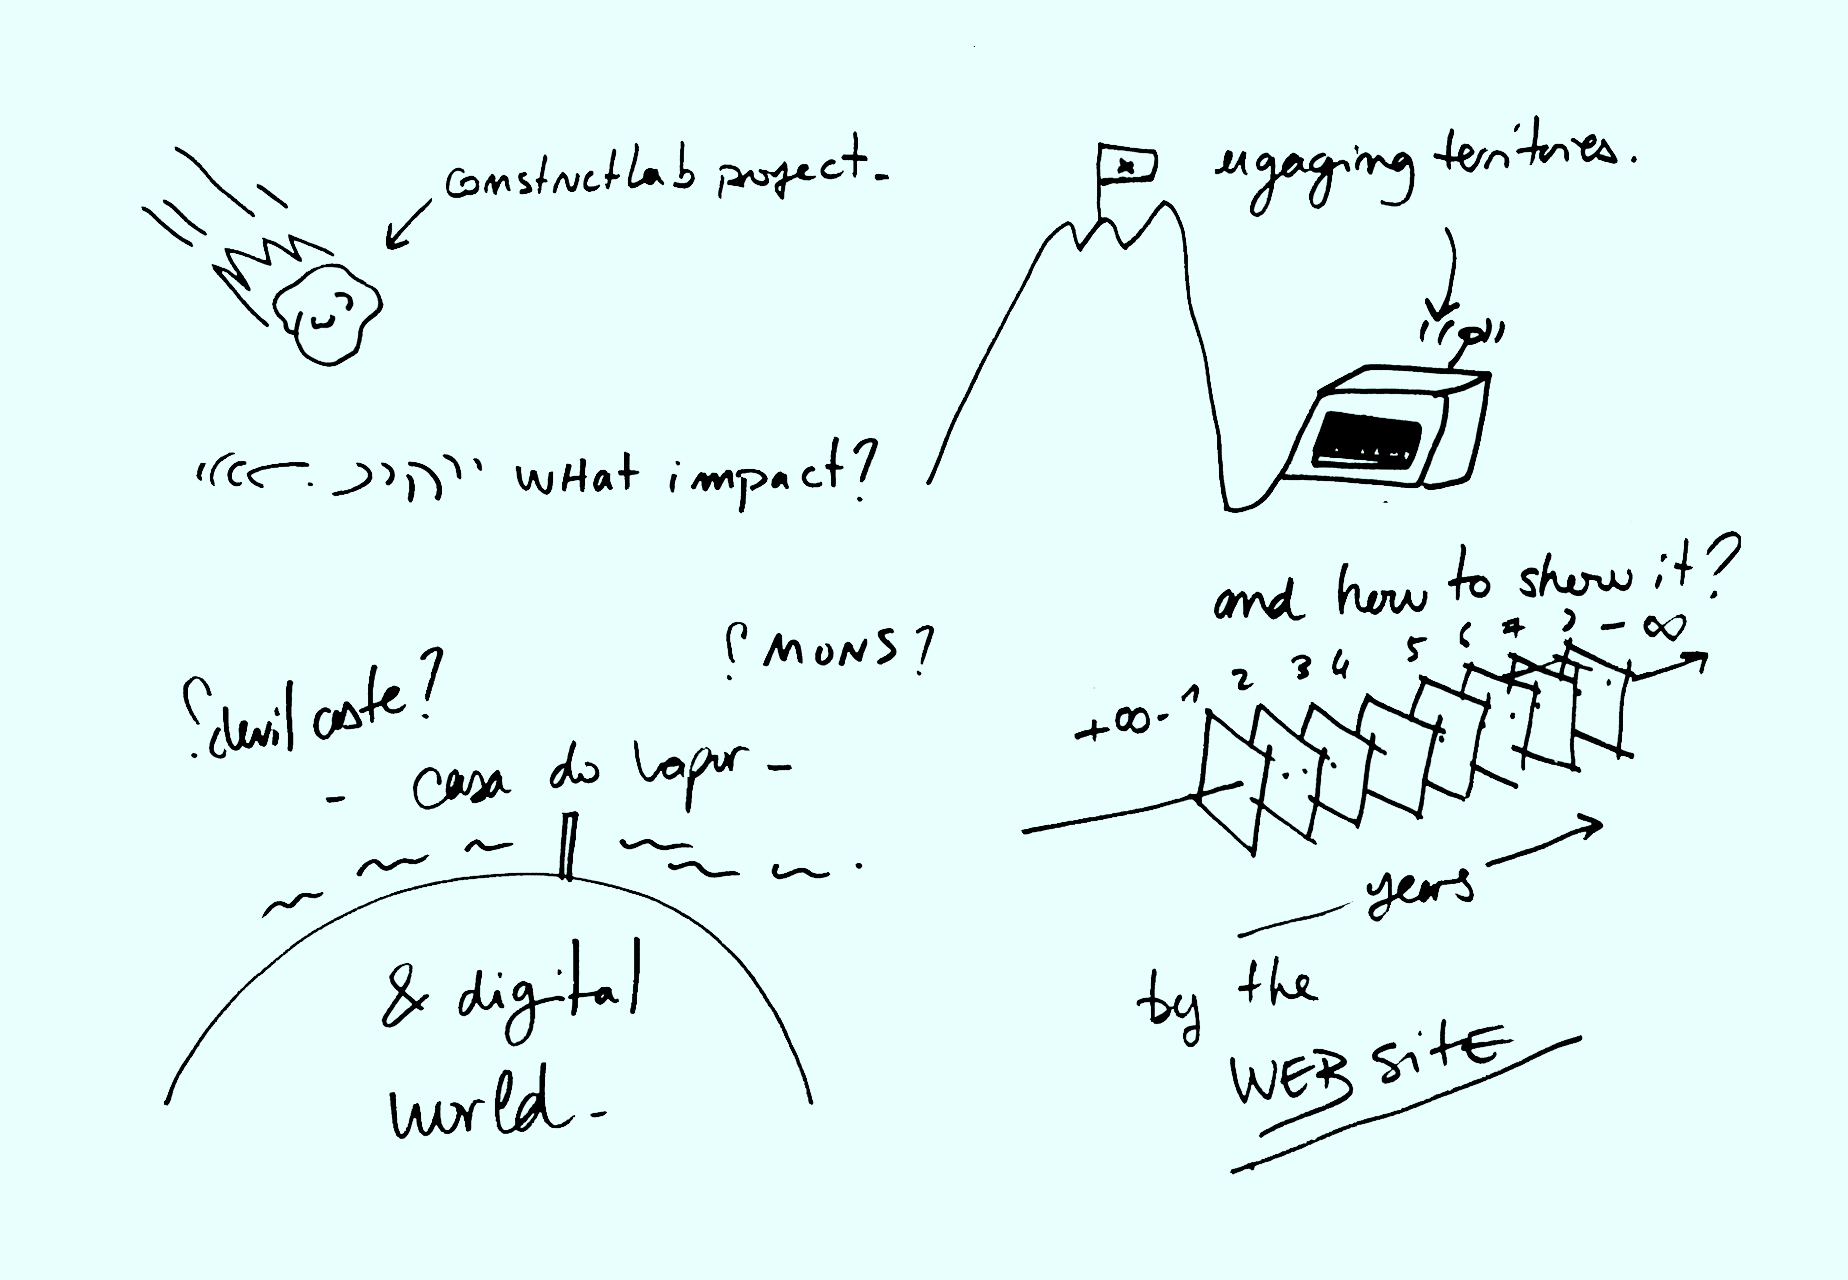 constructLab project-
WHat impact?
engaging territories.
and how to show it?
+∞- 1 2 3 4 5 6 7 - ∞
years
by the
WEBSitE
? MONS?
?devil caste?
- casa do vapor -
& digital
world-